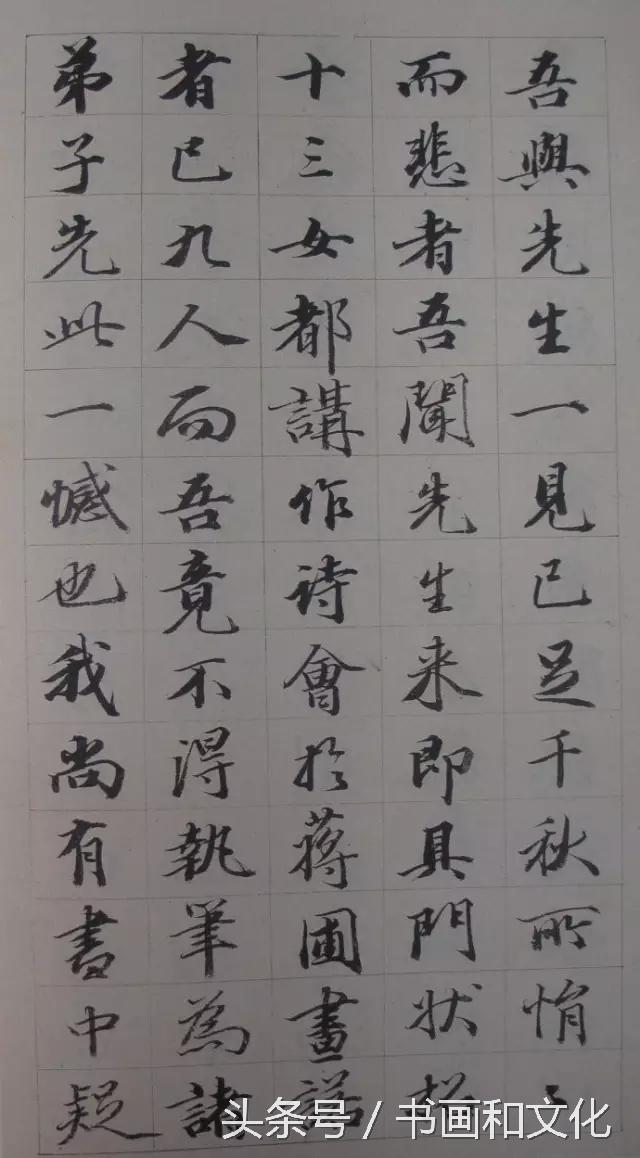 吾與先生一見已足千秋所悁々
而悲者吾聞先生来即具門状
十三女都講作诗會於蒋圃畫
者已九人而吾竟不得執筆為諸
弟子先此一憾也我尚有書中疑
头条号 / 书画和文化